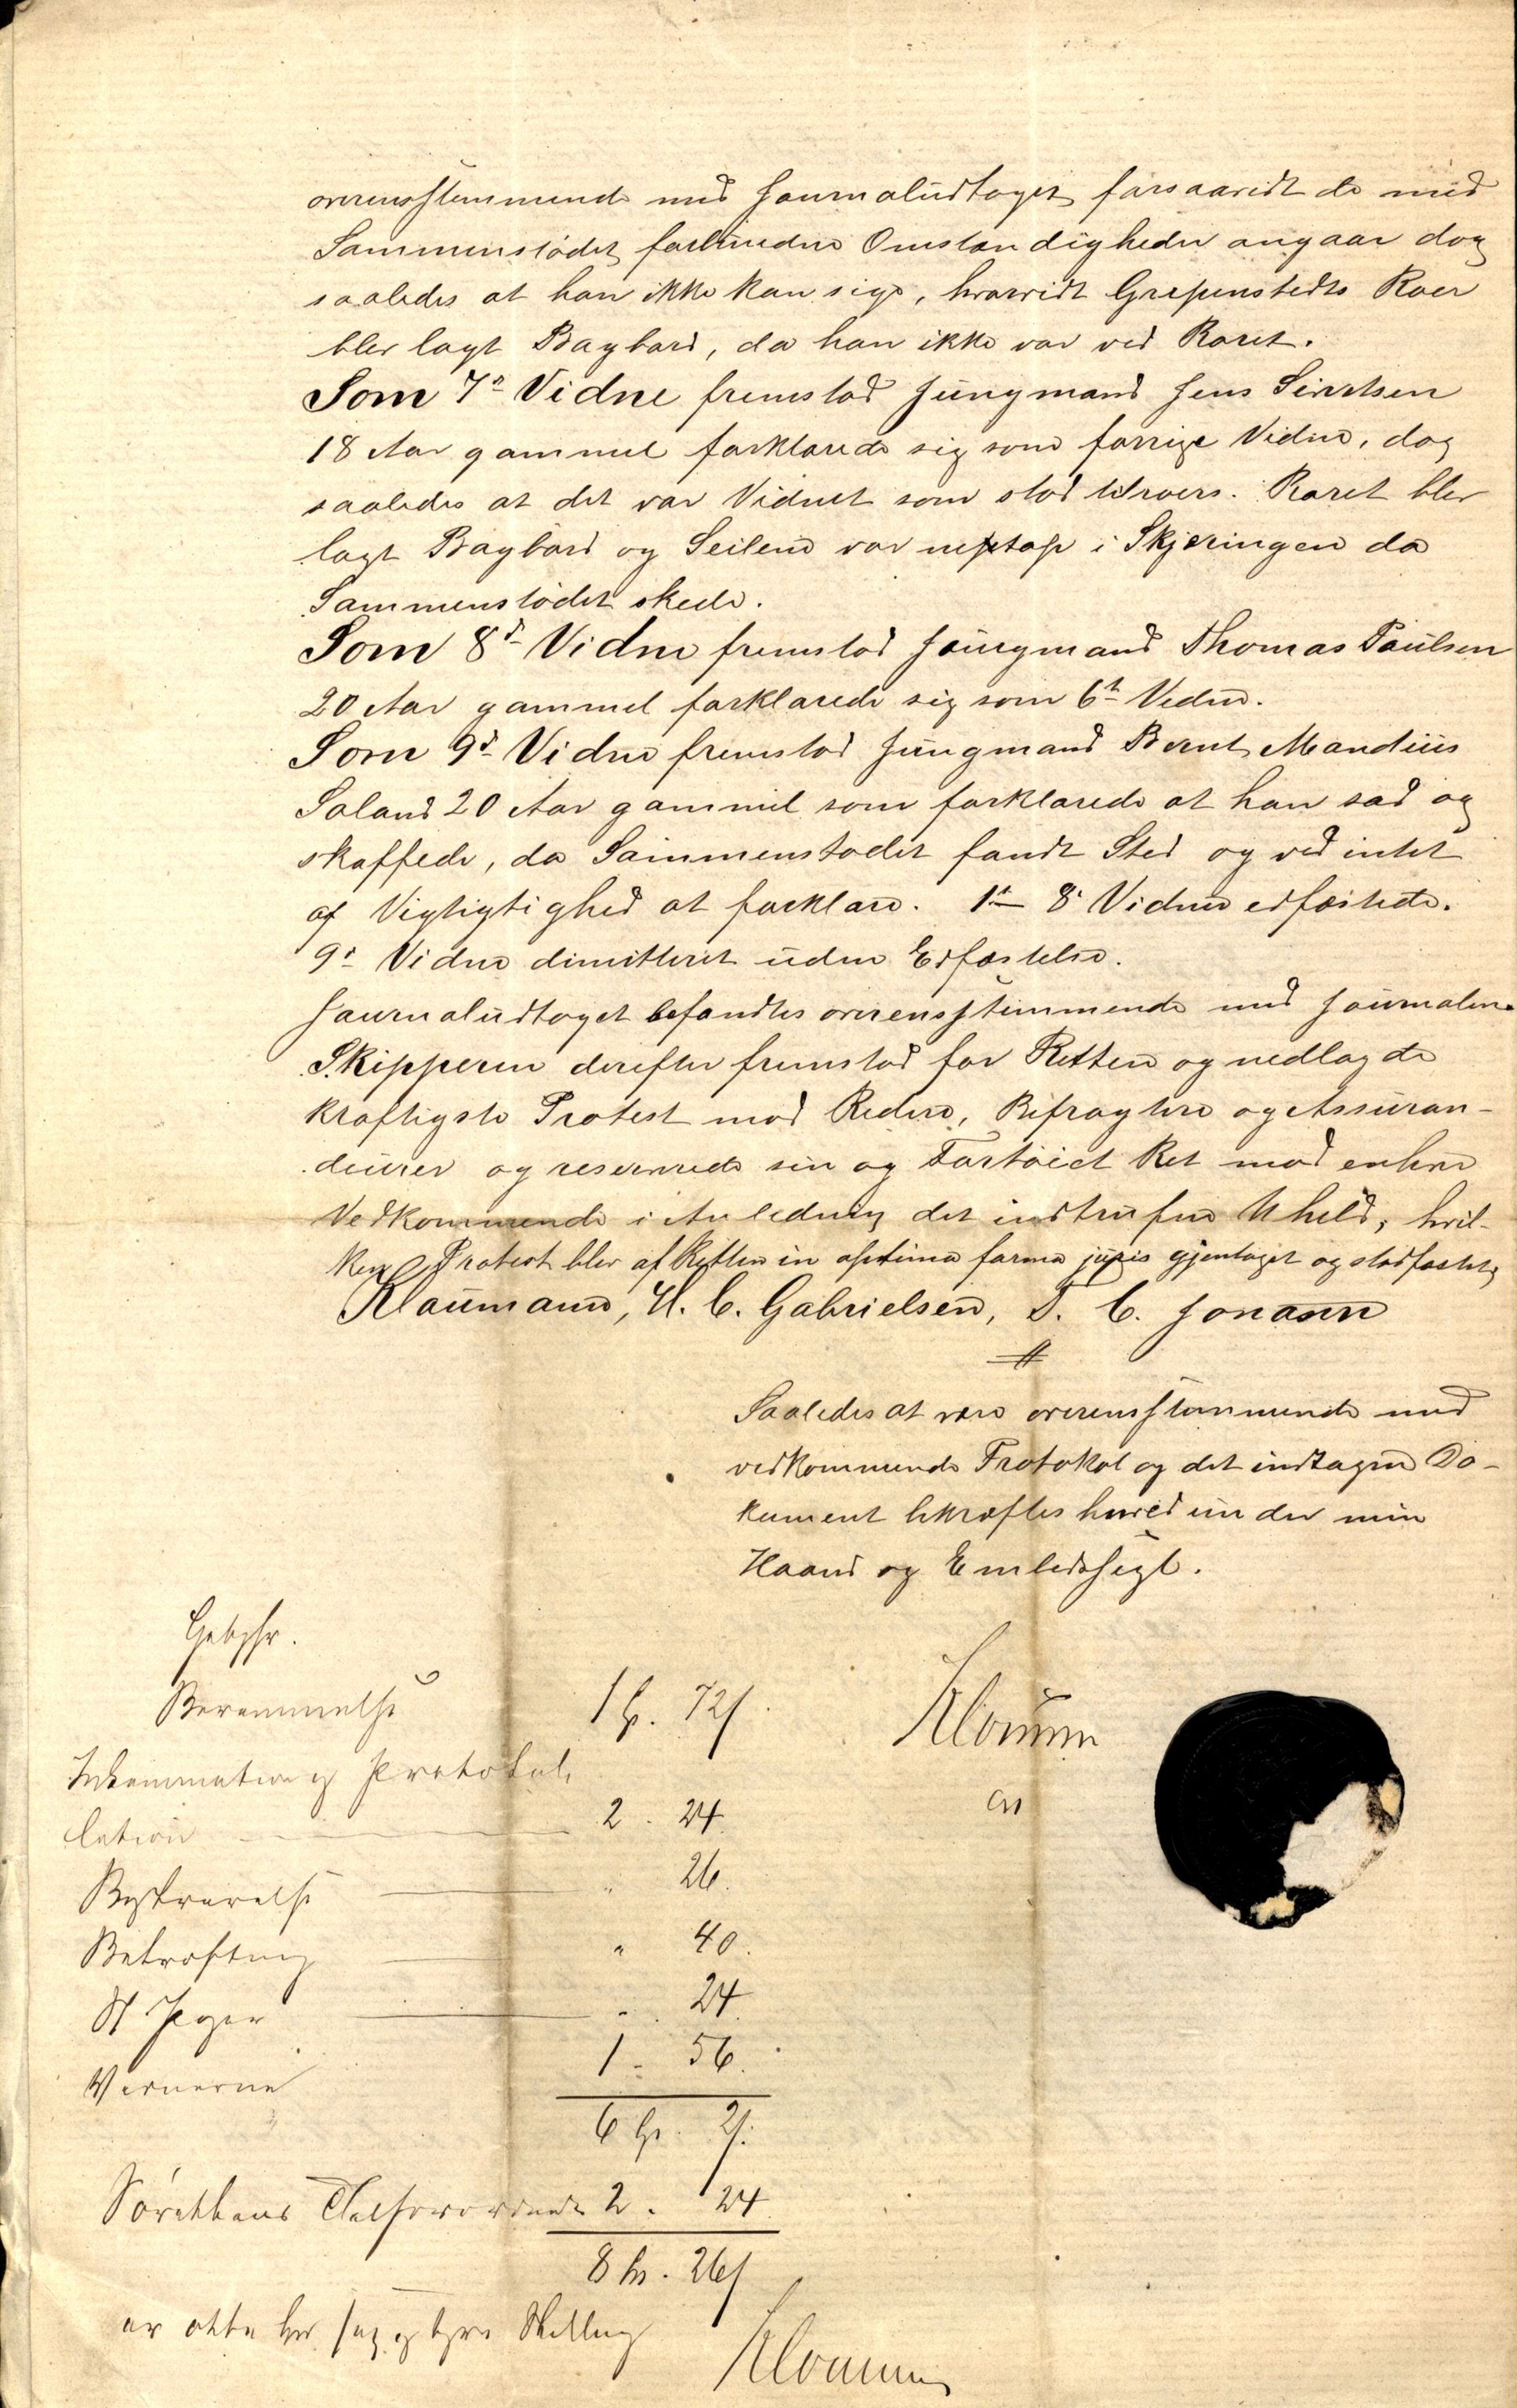 overensstemmende med Journaludtoget forsaavidt de med
Sammenstødet forbundne Omstændigheder angaar dog
saaledes at han ikke kan sige, hvorvidt Grepenstedts Roer
blev lagt Bagbord, da han ikke var ved Roret.
Som 7de Vidne fremstod Jungmand Jens Sivertsen
18 Aar gammel forklarede sig som forrige Vidne, dog
saaledes at det var Vidnet som stod tilroers. Roret blev
lagt Bagbord og Seilene var neptop i Skjæringen da
Sammenstødet skede.
Som 8d Vidne fremstod Jungmand Thomas Paulsen
20 Aar gammel forklarede sig som 6te Vidne.
Som 9d Vidne fremstod Jungmand Bernt Mandius
Soland 20 Aar gammel som forklarede at han sad og
skaffede, da Sammenstødet fandt Sted og ved intet
af Vigtigtighed at forklare. 1te 8d Vidne edfæstede.
9d Vidne dimitteret uden Edfæstelse.
Journaludtoget befandtes overensstemmende med Journalen.
Skipperen derefter fremstod for Retten og nedlagde
kraftigste Protest mod Redere, Befragtere og Assuran-
deurer og reserverede sin og Fartøiet Ret mod enhver
Vedkommende i Anledning det indtrufne Uheld, hvil-
ken Protest blev af Retten in optima forma juris gjentaget og stadfæstet
Klaumann, H. C. Gabrielsen, T. C. Jonassen
Saaledes at være overensstemmende med
vedkommende Protokol og det indtagne Do-
kument bekræftes herved under min
Haand og Embedssegl.
Gebyhr.
Berammelse 1 72
Inkammation og Protokol-
lation 2 . 24
Beskrivelse " 26.
Bekræftning " 40.
St Peger " 24
Vidnerne 1 - 56.
6 2
Søretten 2 . 24
8 26
er otte og tyve Skilling